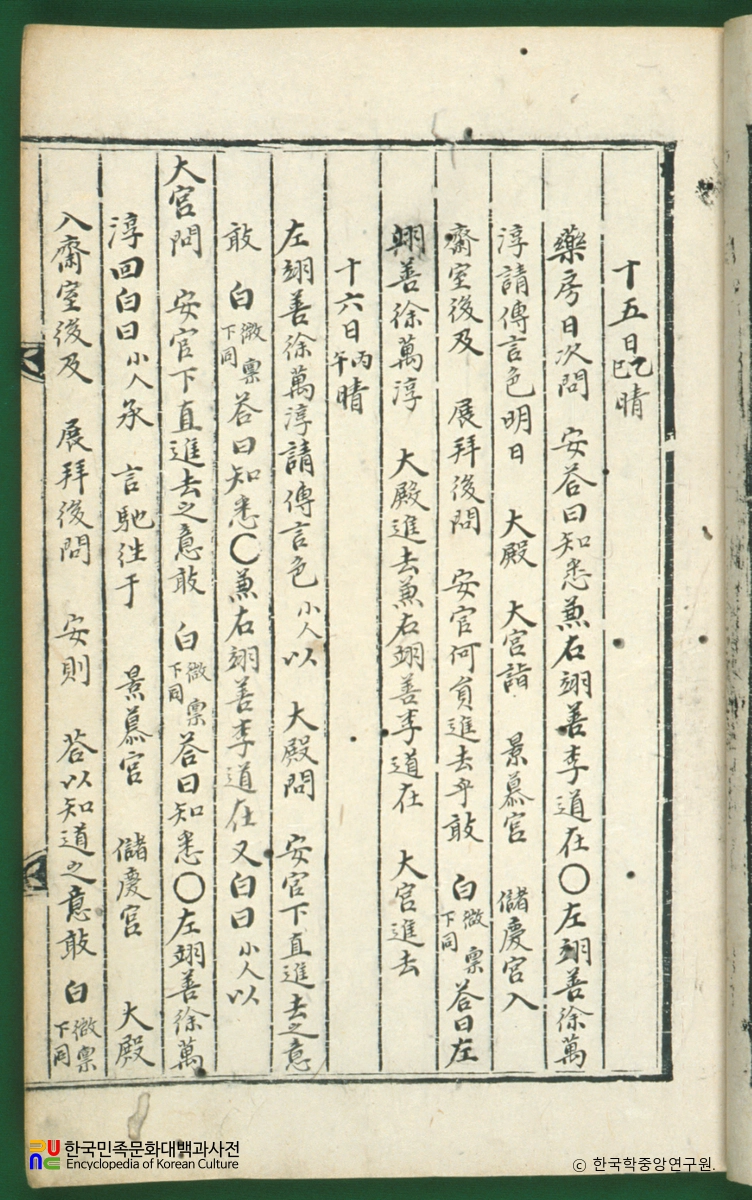 十五日乙巳晴
藥房日次問 安答曰知悉兼右翊善李道在○左翊善徐萬
淳請傳言色明日 大殿 大宮詣 景慕宮 儲慶宮入
齋室後及 展拜後問 安官何員進去乎敢 白微稟下同答曰左
翊善徐萬淳 大殿進去兼右翊善李道在 大宮進去
十六日丙午晴
左翊善徐萬淳請傳言色小人以 大殿問 安官下直進去之意
敢 白微稟下同答曰知悉○兼右翊善李道在又白曰小人以
大宮問 安官下直進去之意敢 白微稟下同答曰知悉○左翊善徐萬
淳回白曰小人承 言馳往于 景慕宮 儲慶宮 大殿
入齋室後及 展拜後問 安則 答以知道之意敢 白微稟下同
한국민족문화대백과사전
Encyclopedia of Korean Culture
ⓒ 한국학중앙연구원.